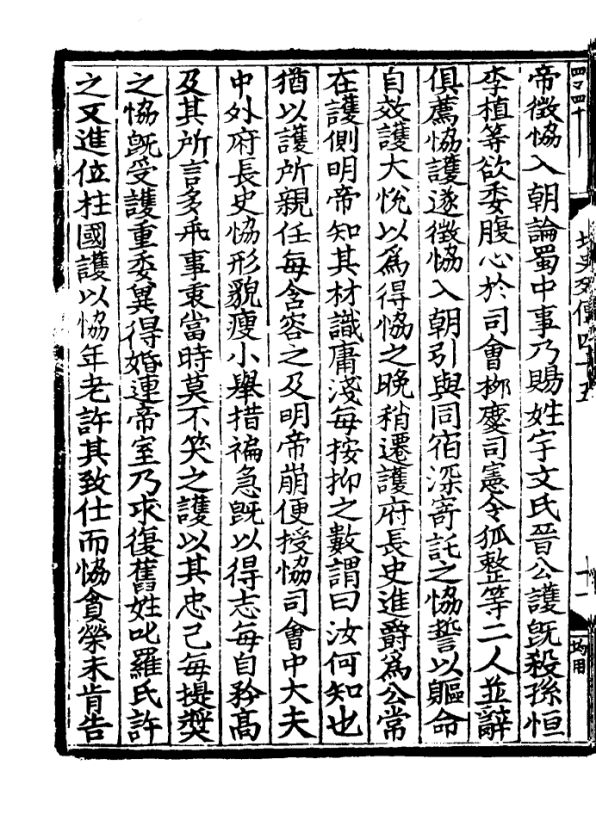 帝徵恊入朝論蜀中事乃賜姓宇文氏晉公護旣殺孫恒
李植等欲委腹心於司會柳慶司憲令狐整等二人並辭
俱薦恊護遂徵恊入朝引與同宿深寄託之恊誓以軀命
自效護大恱以爲得恊之晚稍遷護府長史進爵爲公常
在護側明帝知其材識庸淺每按抑之數謂曰汝何知也
猶以護所親任每含容之及明帝崩便授恊司會中大夫
中外府長史恊形貌瘦小舉措褊急旣以得志每自矜高
及其所言多乖事衷當時莫不笑之護以其忠己每提奬
之恊旣受護重委兾得婚連帝室乃求復舊姓叱羅氏許
之又進位柱國護以恊年老許其致仕而恊貪榮未肯告
北史列傳四十五
十一
均用